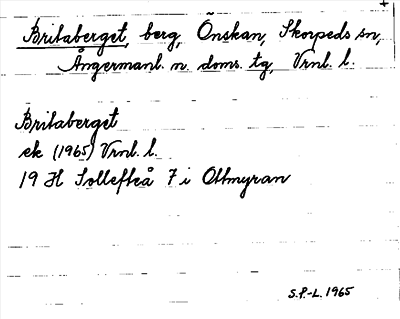 Britaberget, berg, Önskan, Skorpeds sn,
Ångermanl. n. doms. tg, Vrnl. l.
Britaberget
ek (1965) Vrnl. l.
19 H Sollefteå 7 i Ottmyran
S.P.-L. 1965